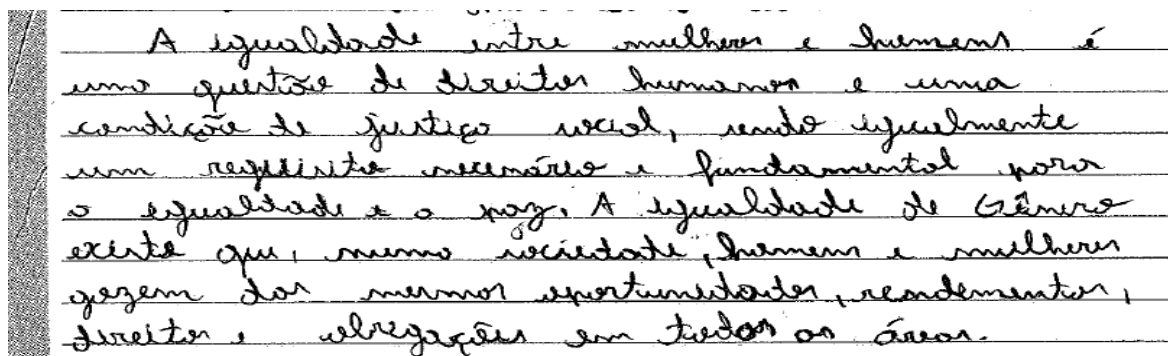 A igualdade entre mulheres e humens é
uma questão de direitos humanos e uma
condição de justiça social, sendo igualmente
um requisito necessário e fundamental para
a egualdade e a paz. A igualdade de Gênero
existe que, numa sociedade, homens e mulheres
gozem das mesmas oportunidades, rendementos,
direitos e obregações em todas as áreas.